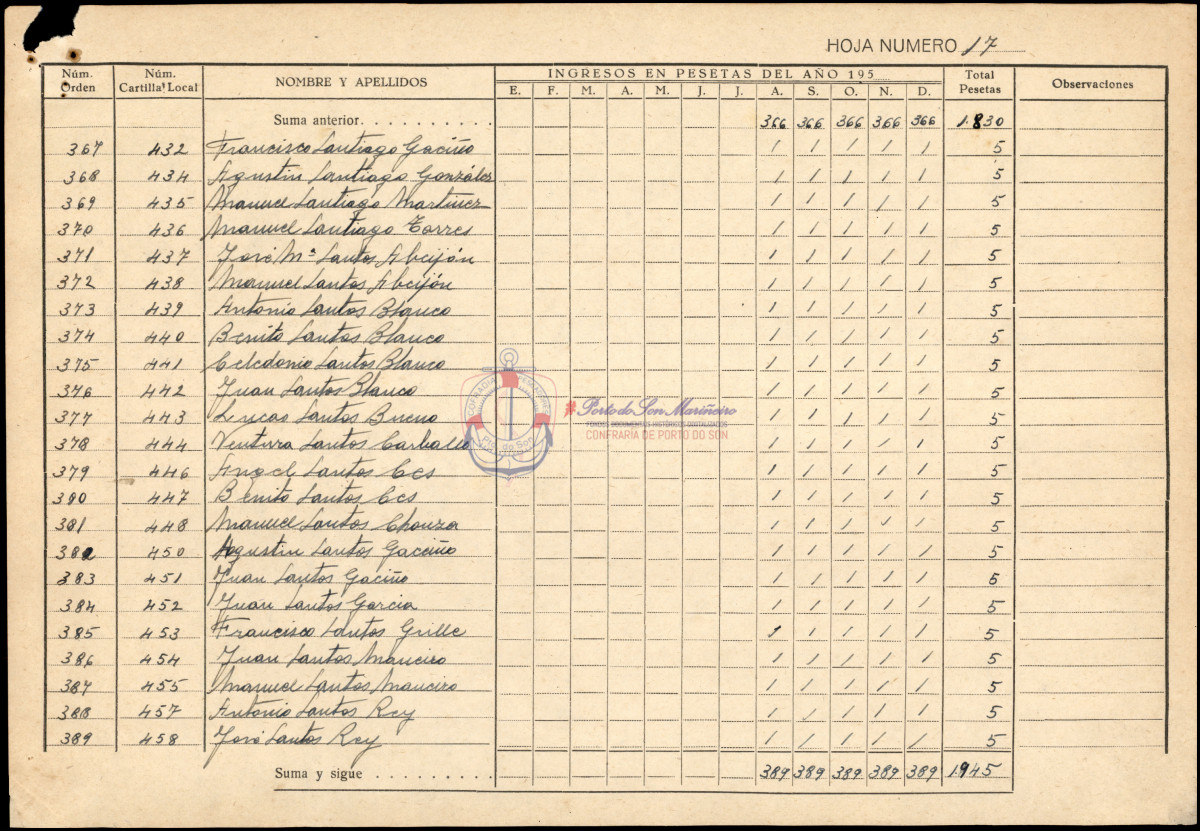 HOJA NUMERO 17
Núm. Orden Núm. Cartilla Local NOMBRE Y APELLIDOS INGRESOS EN PESETAS DEL AÑO 195 Total Pesetas Observaciones
E. F. M. A. M. J. J. A. S. O. N. D.
Suma anterior. . . . . . . . . . 366 366 366 366 366 1.830
367 432 Francisco Santiago Gaciño / / / / / 5
368 434 Agustin Santiago González / / / / / 5
369 435 Manuel Santiago Martinez / / / / / 5
370 436 Manuel Santiago Torres / / / / / 5
371 437 José Mª Santos Abeijón / / / / / 5
372 438 Manuel Santos Abeijón / / / / / 5
373 439 Antonio Santos Blanco / / / / / 5
374 440 Benito Santos Blanco / / / / / 5
375 441 Celedonio Santos Blanco / / / / / 5
376 442 Juan Santos Blanco / / / / / 5
377 443 Lucas Santos Bueno / / / / / 5
378 444 Ventura Santos Carballo / / / / / 5
379 446 Angel Santos Ces / / / / / 5
380 447 Benito Santos Ces / / / / / 5
381 448 Manuel Santos Chouza / / / / / 5
382 450 Agustin Santos Gaciño / / / / / 5
383 451 Juan Santos Gaciño / / / / / 5
384 452 Juan Santos Garcia / / / / / 5
385 453 Francisco Santos Grille / / / / / 5
386 454 Juan Santos Maneiro / / / / / 5
387 455 Manuel Santos Maneiro / / / / / 5
388 457 Antonio Santos Rey / / / / / 5
389 458 José Santos Rey / / / / / 5
Suma y sigue . . . . . . . . . 389 389 389 389 389 1.945
COFRADIA
Pto. do Son
Porto do Son Mariñeiro
FONDOS DOCUMENTAIS HISTÓRICOS DIXITALIZADOS
CONFRARÍA DE PORTO DO SON